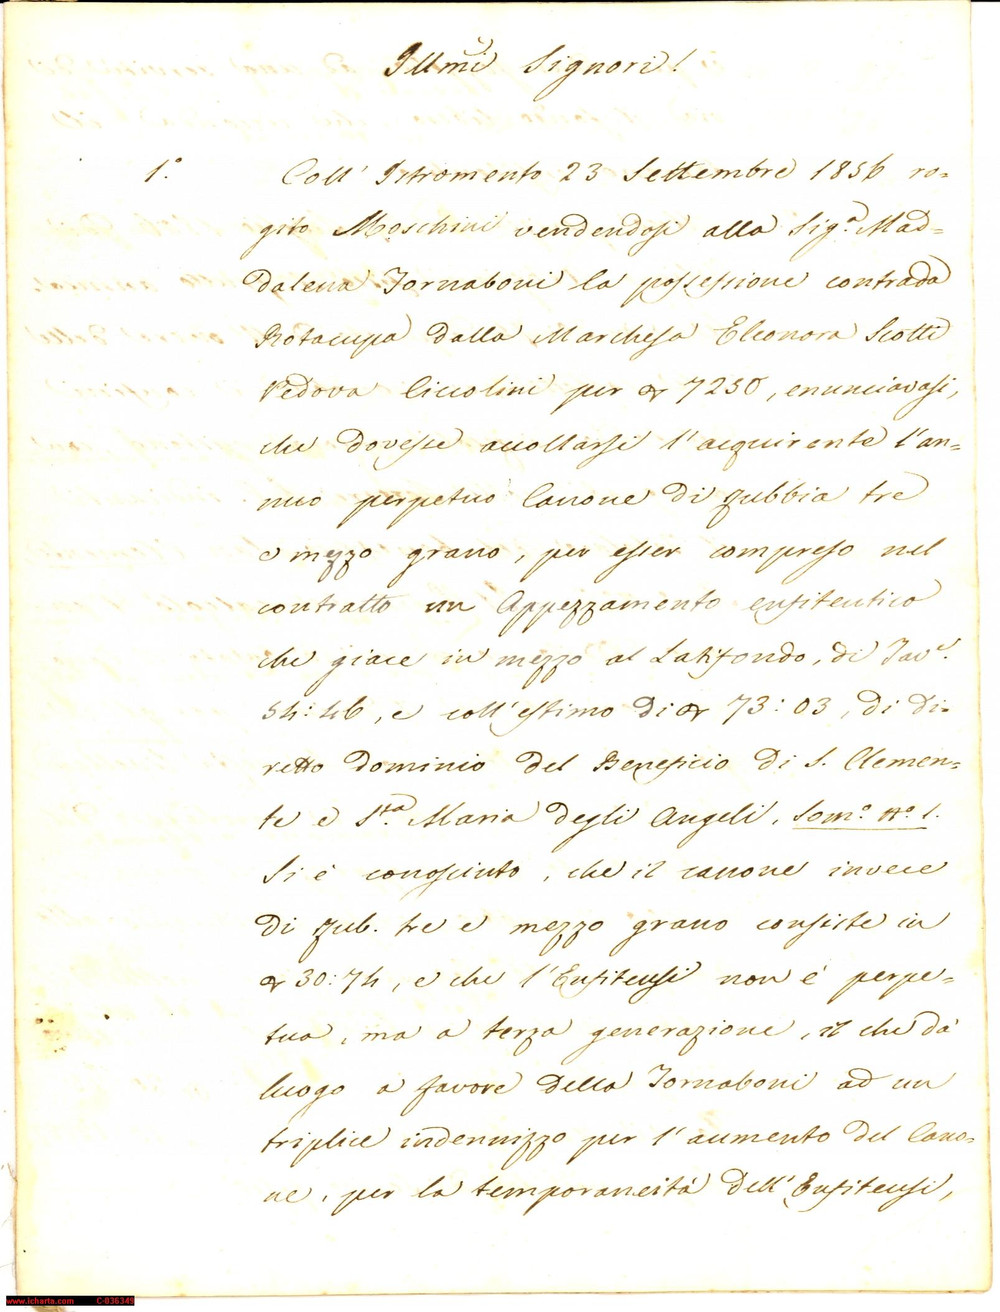 Illmi Signori!
1.° Coll' Istromento 23 Settembre 1856 ro-
gito Moschini vendendosi alla Sig.a Mad-
dalena Tornaboni la possessione contrada
Rotacupa dalla Marchesa Eleonora Scotti
Vedova Ciccolini per 7250, enunciavasi,
che dovesse accollarsi l'acquirente l'an-
nuo perpetuo Canone di rubbia tre
e mezzo grano, per esser compreso nel
contratto un Appezzamento enfiteutico
che giace in mezzo al Latifondo, di Tav.e
54:46, e coll'estimo di 73:03, di di-
retto dominio del Beneficio di S. Clemen-
te e S.ta Maria degli Angeli, Som.o N.o 1.
Si è conosciuto, che il canone invece
di rub. tre e mezzo grano consiste in
30:74, e che l'Enfiteusi non è perpe-
tua, ma a terza generazione, il che dà
luogo a favore della Tornaboni ad un
triplice indennizzo per l'aumento del Cano-
ne, per la temporaneità dell'Enfiteusi,
www.icharta.com C-036349